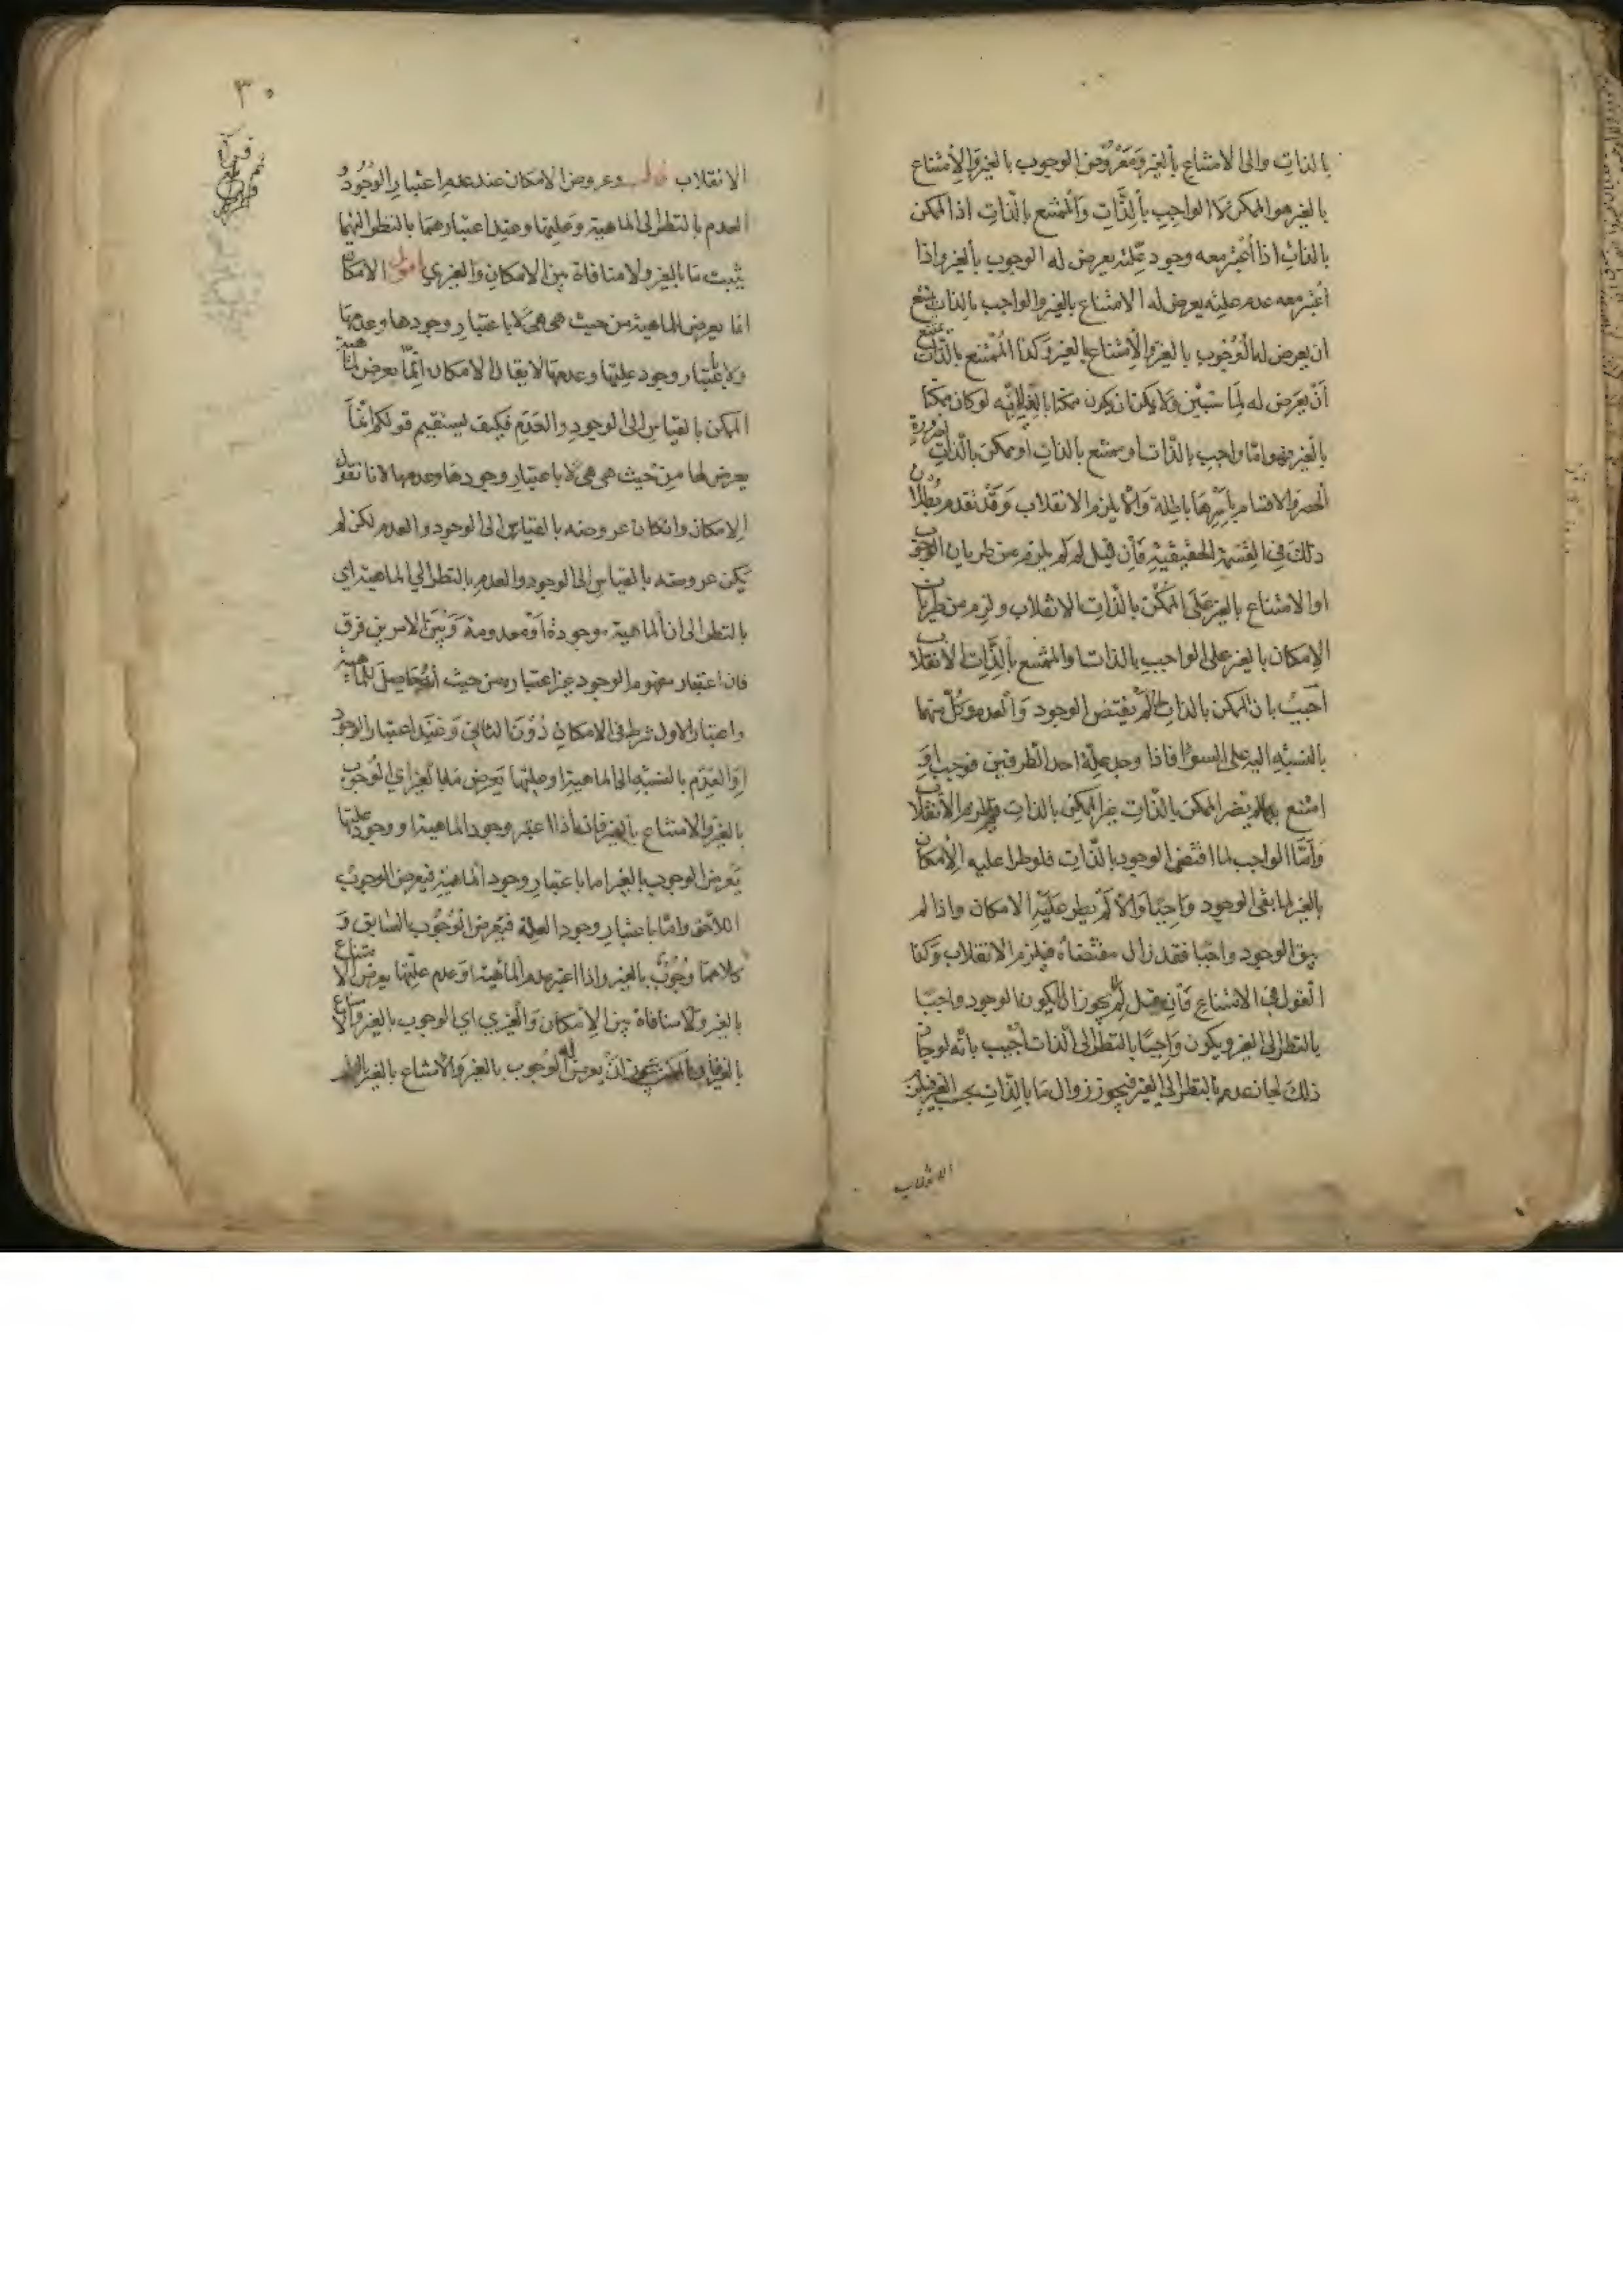 بالذات والى الامتناع بالغير ومعروض الوجوب بالغير والامتناع
بالغير هو الممكن لا الواجب بالذات والممتنع بالذات اذ الممكن
بالذات اذا اعتبر معه وجود علته يعرض له الوجوب بالغير واذا
اعتبر معه عدم علته يعرض له الامتناع بالغير والواجب بالذات يمتنع
ان يعرض له الوجوب بالغير والامتناع بالغير وكذا الممتنع بالذات يمتنع
ان يعرض له لما سنبين ولا يمكن ان يكون ممكنا بالغير لانه لو كان ممكنا
بالغير فهو اما واجب بالذات او ممتنع بالذات او ممكن بالذات لضرورة
الحصر والاقسام باسرها باطلة والا يلزم الانقلاب وقد تقدم بطلان
ذلك في القسمة الحقيقية فان قيل لم لم يلزم من طريان الوجوب
او الامتناع بالغير على الممكن بالذات الانقلاب ولزم من طريان
الامكان بالغير على الواجب بالذات والممتنع بالذات الانقلاب
اجيب بان الممكن بالذات لما لم يقتض الوجود والعدم وكل منهما
بالنسبة اليه على السواء فاذا وجد علة احد الطرفين فوجب او
امتنع بها لم يصر الممكن بالذات غير الممكن بالذات فلم يلزم الانقلاب
واما الواجب لما اقتضى الوجود بالذات فلو طرا عليه الامكان
بالغير لما بقى الوجود واجبا والا لم يطر عليه الامكان واذا لم
يبق الوجود واجبا فقد زال مقتضاه فيلزم الانقلاب وكذا
القول في الامتناع فان قيل لم لا يجوز ان يكون الوجود واجبا
بالنظر الى الغير ويكون واجبا بالنظر الى الذات اجيب بانه لو جاز
ذلك لجاز عدمه بالنظر الى الغير فيجوز زوال ما بالذات بحسب الغير فيلزم
الانقلاب
٣٠
الانقلاب قال وعروض الامكان عند عدم اعتبار الوجود و
العدم بالنظر الى الماهية وعلتها وعند اعتبارهما بالنظر اليهما
يثبت ما بالغير ولا منافاة بين الامكان والغيري اقول الامكان
انما يعرض للماهية من حيث هي هي لا باعتبار وجودها وعدمها
ولا باعتبار وجود علتها وعدمها لا يقال الامكان انما يعرض لماهية
الممكن بالقياس الى الوجود والعدم فكيف يستقيم قولكم انما
يعرض لها من حيث هي هي لا باعتبار وجودها وعدمها لانا نقول
الامكان وان كان عروضه بالقياس الى الوجود والعدم لكن لم
يكن عروضه بالقياس الى الوجود والعدم بالنظر الى الماهية اي
بالنظر الى ان الماهية موجودة او معدومة وبين الامرين فرق
فان اعتبار مفهوم الوجود غير اعتباره من حيث انه حاصل للماهية
واعتبار الاول شرط في الامكان دون الثاني وعند اعتبار الوجود
او العدم بالنسبة الى الماهية او علتها يعرض ما بالغير اي الوجوب
بالغير والامتناع بالغير فانه اذا اعتبر وجود الماهية او وجود علتها
يعرض الوجوب بالغير اما باعتبار وجود الماهية فيعرض الوجوب
اللاحق واما باعتبار وجود العلة فيعرض الوجوب السابق و
كلاهما وجوب بالغير واذا اعتبر عدم الماهية او عدم علتها يعرض الامتناع
بالغير ولا منافاة بين الامكان والغيري اي الوجوب بالغير والامتناع
بالغير فان الممكن يجوز ان يعرض له الوجوب بالغير والامتناع بالغير